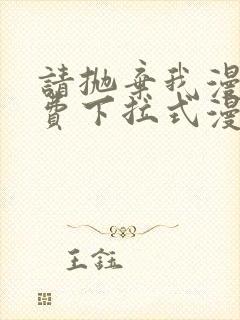 請抛棄我漫
費下拉式漫
王鈺